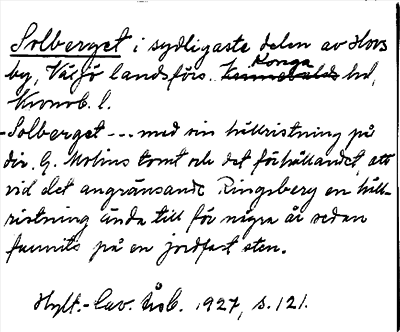 Solberget i sydligaste delen av Hovs
by, Växjö landsförs. Konga hd,
Kronob. l.
-Solberget --- med sin hällristning på
dir. G. Molins tomt och det förhållandet, att
vid det angränsande Ringsberg en häll-
ristning ända till för några år sedan
funnits på en jordfast sten.
Hylt.-Cav. Åsb. 1927, s. 121.